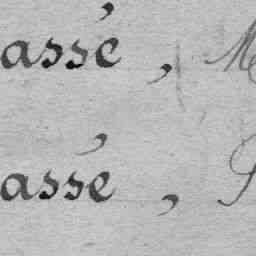 assé, M
assé,